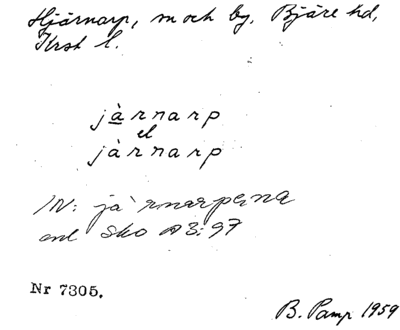 Hjärnarp, sn och by, Bjäre hd,
Krst l.
jà̲rnarp
el
jàrnarp
IN: jà`rnarpena
enl Sko A3:97
Nr 7305.
B. Pamp 1959